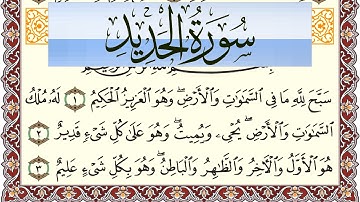 سورة الحديد
سَبَّحَ لِلَّهِ مَا فِي السَّمَٰوَٰتِ وَالْأَرْضِ ۖ وَهُوَ الْعَزِيزُ الْحَكِيمُ ١ لَهُ مُلْكُ
السَّمَٰوَٰتِ وَالْأَرْضِ ۖ يُحْيِۦ وَيُمِيتُ ۖ وَهُوَ عَلَىٰ كُلِّ شَيْءٍ قَدِيرٌ ٢
هُوَ الْأَوَّلُ وَالْآخِرُ وَالظَّاهِرُ وَالْبَاطِنُ ۖ وَهُوَ بِكُلِّ شَيْءٍ عَلِيمٌ ٣